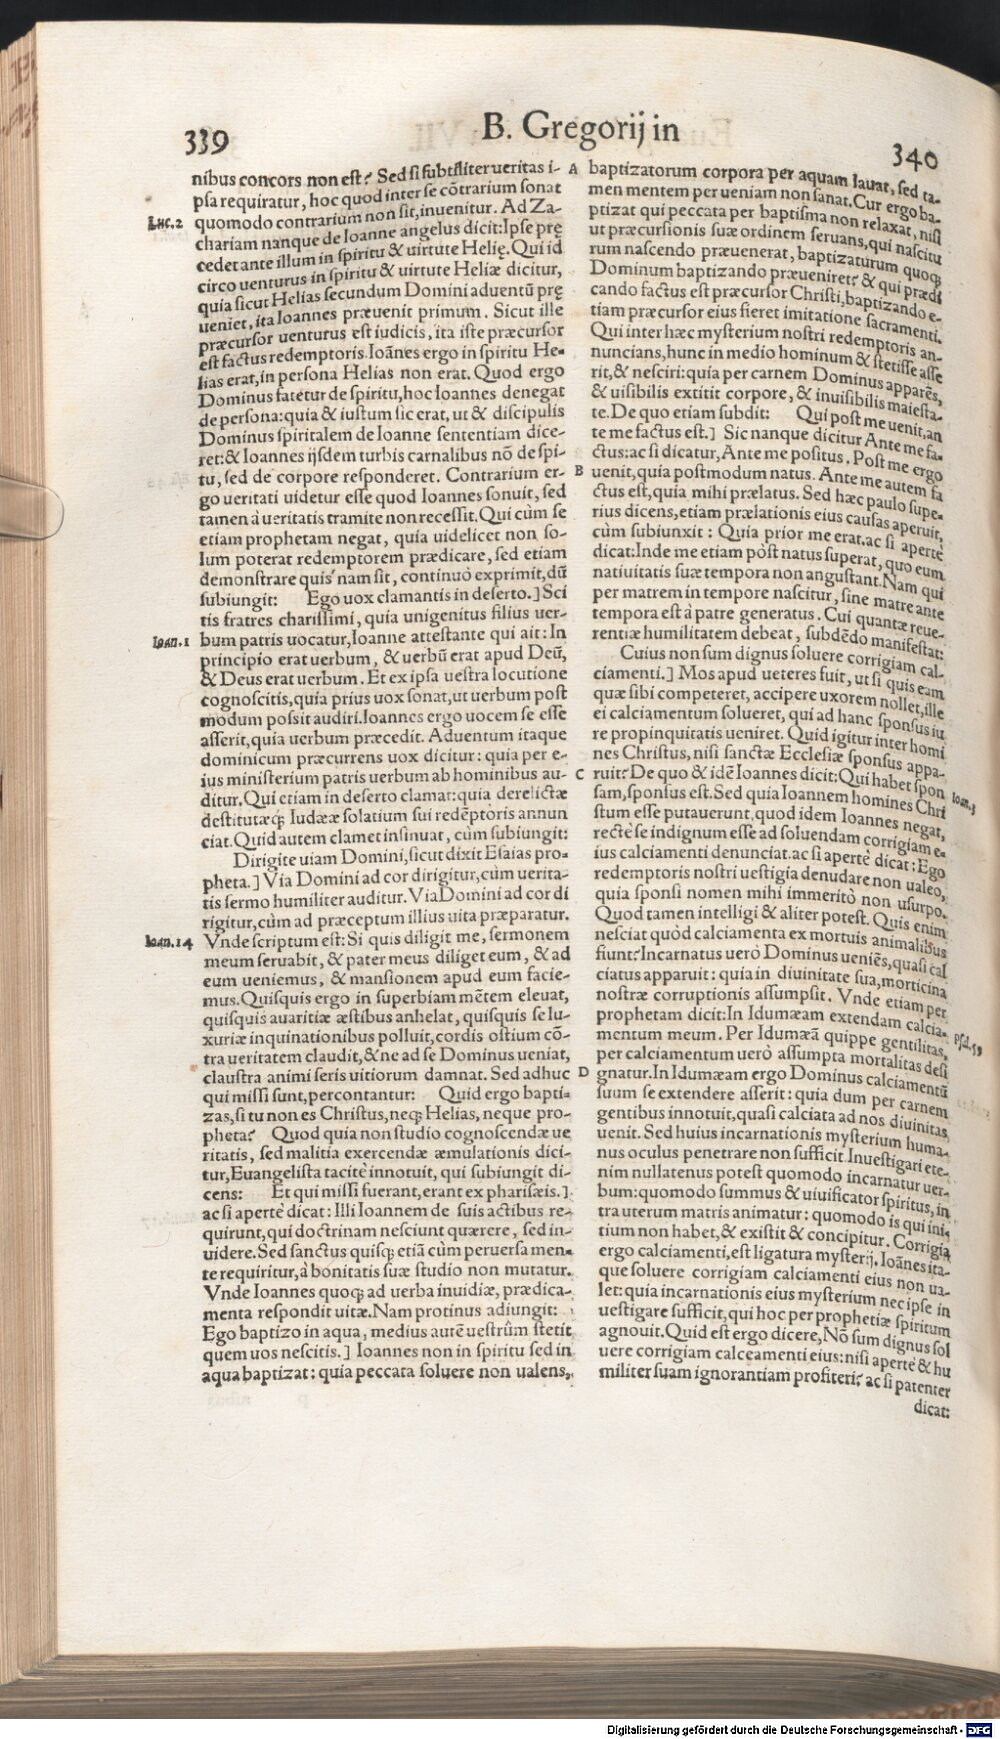 339
B. Gregorij in
340
nibus concors non est? Sed si subtiliter ueritas i-
psa requiratur, hoc quod inter se cōtrarium sonat
Luc.2
quomodo contrarium non sit, inuenitur. Ad Za-
chariam nanque de Ioanne angelus dicit: Ipse prę
cedet ante illum in spiritu & uirtute Helię. Qui id
circo uenturus in spiritu & uirtute Heliæ dicitur,
quia sicut Helias secundum Domini aduentū prę
ueniet, ita Ioannes præuenit primum. Sicut ille
præcursor uenturus est iudicis, ita iste præcursor
est factus redemptoris. Ioānes ergo in spiritu He-
lias erat, in persona Helias non erat. Quod ergo
Dominus fatetur de spiritu, hoc Ioannes denegat
de persona: quia & iustum sic erat, ut & discipulis
Dominus spiritalem de Ioanne sententiam dice-
ret: & Ioannes ijsdem turbis carnalibus nō de spi-
tu, sed de corpore responderet. Contrarium er-
go ueritati uidetur esse quod Ioannes sonuit, sed
tamen à ueritatis tramite non recessit. Qui cùm se
etiam prophetam negat, quia uidelicet non so-
lum poterat redemptorem prædicare, sed etiam
demonstrare quis nam sit, continuò exprimit, dū
subiungit: Ego uox clamantis in deserto.] Sci
tis fratres charissimi, quia unigenitus filius uer-
Ioan.1
bum patris uocatur, Ioanne attestante qui ait: In
principio erat uerbum, & uerbū erat apud Deū,
& Deus erat uerbum. Et ex ipsa uestra locutione
cognoscitis, quia prius uox sonat, ut uerbum post
modum possit audiri. Ioannes ergo uocem se esse
asserit, quia uerbum præcedit. Aduentum itaque
dominicum præcurrens uox dicitur: quia per e-
ius ministerium patris uerbum ab hominibus au-
ditur. Qui etiam in deserto clamat: quia derelictæ
destitutæq; Iudææ solatium sui redēptoris annun
ciat. Quid autem clamet insinuat, cùm subiungit:
Dirigite uiam Domini, sicut dixit Esaias pro-
pheta.] Via Domini ad cor dirigitur, cùm uerita-
tis sermo humiliter auditur. Via Domini ad cor di
rigitur, cùm ad præceptum illius uita præparatur.
Ioan.14
Vnde scriptum est: Si quis diligit me, sermonem
meum seruabit, & pater meus diliget eum, & ad
eum ueniemus, & mansionem apud eum facie-
mus. Quisquis ergo in superbiam mētem eleuat,
quisquis auaritiæ æstibus anhelat, quisquis se lu-
xuriæ inquinationibus polluit, cordis ostium cō-
tra ueritatem claudit, & ne ad se Dominus ueniat,
claustra animi seris uitiorum damnat. Sed adhuc
qui missi sunt, percontantur: Quid ergo bapti-
zas, si tu non es Christus, neq; Helias, neque pro-
pheta? Quod quia non studio cognoscendæ ue
ritatis, sed malitia exercendæ æmulationis dici-
tur, Euangelista tacitè innotuit, qui subiungit di-
cens: Et qui missi fuerant, erant ex pharisæis.]
ac si apertè dicat: Illi Ioannem de suis actibus re-
quirunt, qui doctrinam nesciunt quærere, sed in-
uidere. Sed sanctus quisq; etiā cùm peruersa men-
te requiritur, à bonitatis suæ studio non mutatur.
Vnde Ioannes quoq; ad uerba inuidiæ, prædica-
menta respondit uitæ. Nam protinus adiungit:
Ego baptizo in aqua, medius autē uestrûm stetit
quem uos nescitis.] Ioannes non in spiritu sed in
aqua baptizat: quia peccata soluere non ualens,
A
baptizatorum corpora per aquam lauat, sed ta-
men mentem per ueniam non sanat. Cur ergo ba-
ptizat qui peccata per baptisma non relaxat, nisi
ut præcursionis suæ ordinem seruans, qui nascitu
rum nascendo præuenerat, baptizaturum quoq;
Dominum baptizando præueniret? & qui prædi
cando factus est præcursor Christi, baptizando e-
tiam præcursor eius fieret imitatione sacramenti.
Qui inter hæc mysterium nostri redemptoris an-
nuncians, hunc in medio hominum & stetisse asse
rit, & nesciri: quia per carnem Dominus apparēs,
& uisibilis extitit corpore, & inuisibilis maiesta-
te. De quo etiam subdit: Qui post me uenit, an
te me factus est.] Sic nanque dicitur Ante me fa-
ctus: ac si dicatur, Ante me positus. Post me ergo
B
uenit, quia postmodum natus. Ante me autem fa
ctus est, quia mihi prælatus. Sed hæc paulo supe-
rius dicens, etiam prælationis eius causas aperuit,
cùm subiunxit: Quia prior me erat. ac si apertè
dicat: Inde me etiam pòst natus superat, quo eum
natiuitatis suæ tempora non angustant. Nam qui
per matrem in tempore nascitur, sine matre ante
tempora est à patre generatus. Cui quantæ reue-
rentiæ humilitatem debeat, subdēdo manifestat:
Cuius non sum dignus soluere corrigiam cal-
ciamenti.] Mos apud ueteres fuit, ut si quis eam
quæ sibi competeret, accipere uxorem nollet, ille
ei calciamentum solueret, qui ad hanc sponsus iu
re propinquitatis ueniret. Quid igitur inter homi
nes Christus, nisi sanctæ Ecclesiæ sponsus appa-
C
ruit? De quo & idē Ioannes dicit: Qui habet spon
Ioan.3
sam, sponsus est. Sed quia Ioannem homines Chri
stum esse putauerunt, quod idem Ioannes negat,
rectè se indignum esse ad soluendam corrigiam e-
ius calciamenti denunciat. ac si apertè dicat: Ego
redemptoris nostri uestigia denudare non ualeo,
quia sponsi nomen mihi immeritò non usurpo.
Quod tamen intelligi & aliter potest. Quis enim
nesciat quòd calciamenta ex mortuis animalibus
fiunt? Incarnatus uerò Dominus ueniēs, quasi cal
ciatus apparuit: quia in diuinitate sua, morticina
nostræ corruptionis assumpsit. Vnde etiam per
prophetam dicit: In Idumæam extendam calcia-
Psal.59
mentum meum. Per Idumæā quippe gentilitas,
per calciamentum uerò assumpta mortalitas desi
D
gnatur. In Idumæam ergo Dominus calciamentū
suum se extendere asserit: quia dum per carnem
gentibus innotuit, quasi calciata ad nos diuinitas
uenit. Sed huius incarnationis mysterium huma-
nus oculus penetrare non sufficit. Inuestigari ete-
nim nullatenus potest quomodo incarnatur uer-
bum: quomodo summus & uiuificator spiritus, in
tra uterum matris animatur: quomodo is qui ini-
tium non habet, & existit & concipitur. Corrigia
ergo calciamenti, est ligatura mysterij. Ioānes ita-
que soluere corrigiam calciamenti eius non ua-
let: quia incarnationis eius mysterium nec ipse in
uestigare sufficit, qui hoc per prophetiæ spiritum
agnouit. Quid est ergo dicere, Nō sum dignus sol
uere corrigiam calceamenti eius: nisi apertè & hu
militer suam ignorantiam profiteri? ac si patenter
dicat:
Digitalisierung gefördert durch die Deutsche Forschungsgemeinschaft - DFG